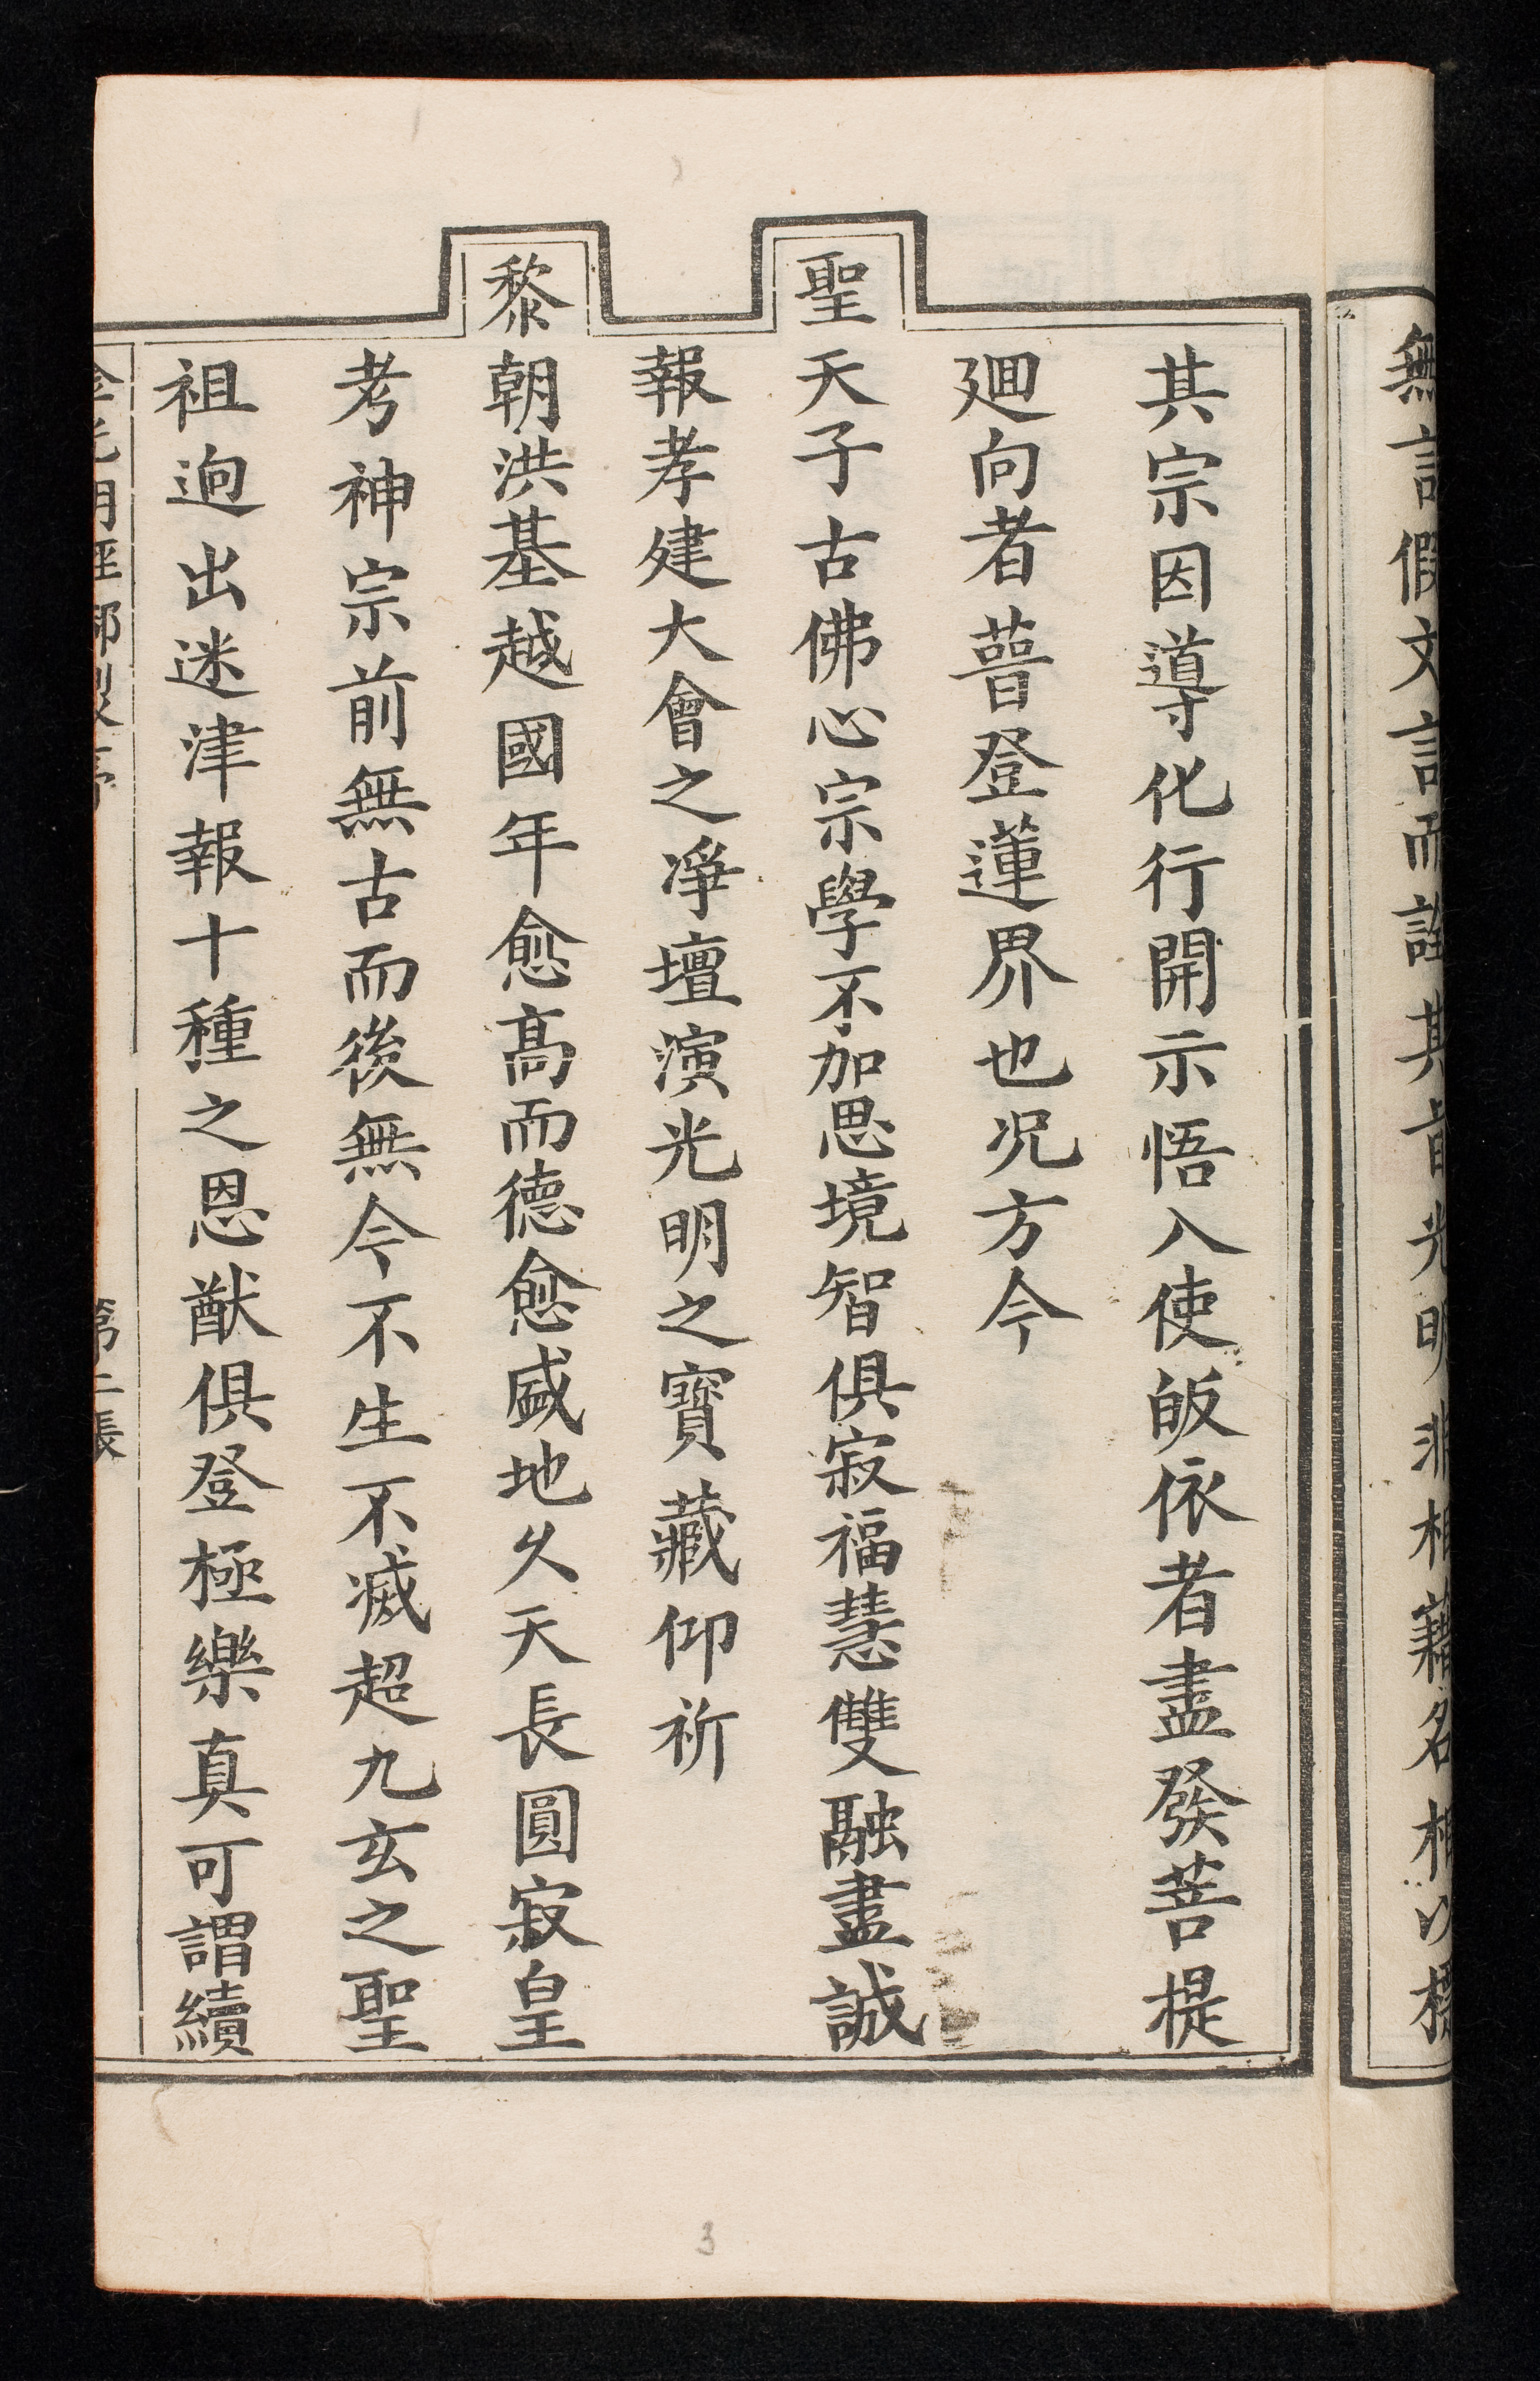 無言假文言而詮其旨光明非相藉名相以標
其宗因導化行開示悟入使皈依者盡發菩提
廻向者普登蓮界也况方今
聖天子古佛心宗學不加思境智俱寂福慧雙融盡誠
報孝建大會之凈壇演光明之寶藏仰祈
黎朝洪基越國年愈高而德愈盛地久天長圓寂皇
考神宗前無古而後無今不生不滅超九玄之聖
祖逈出迷津報十種之恩猷俱登極樂真可謂續
金光明經御製序
第二張